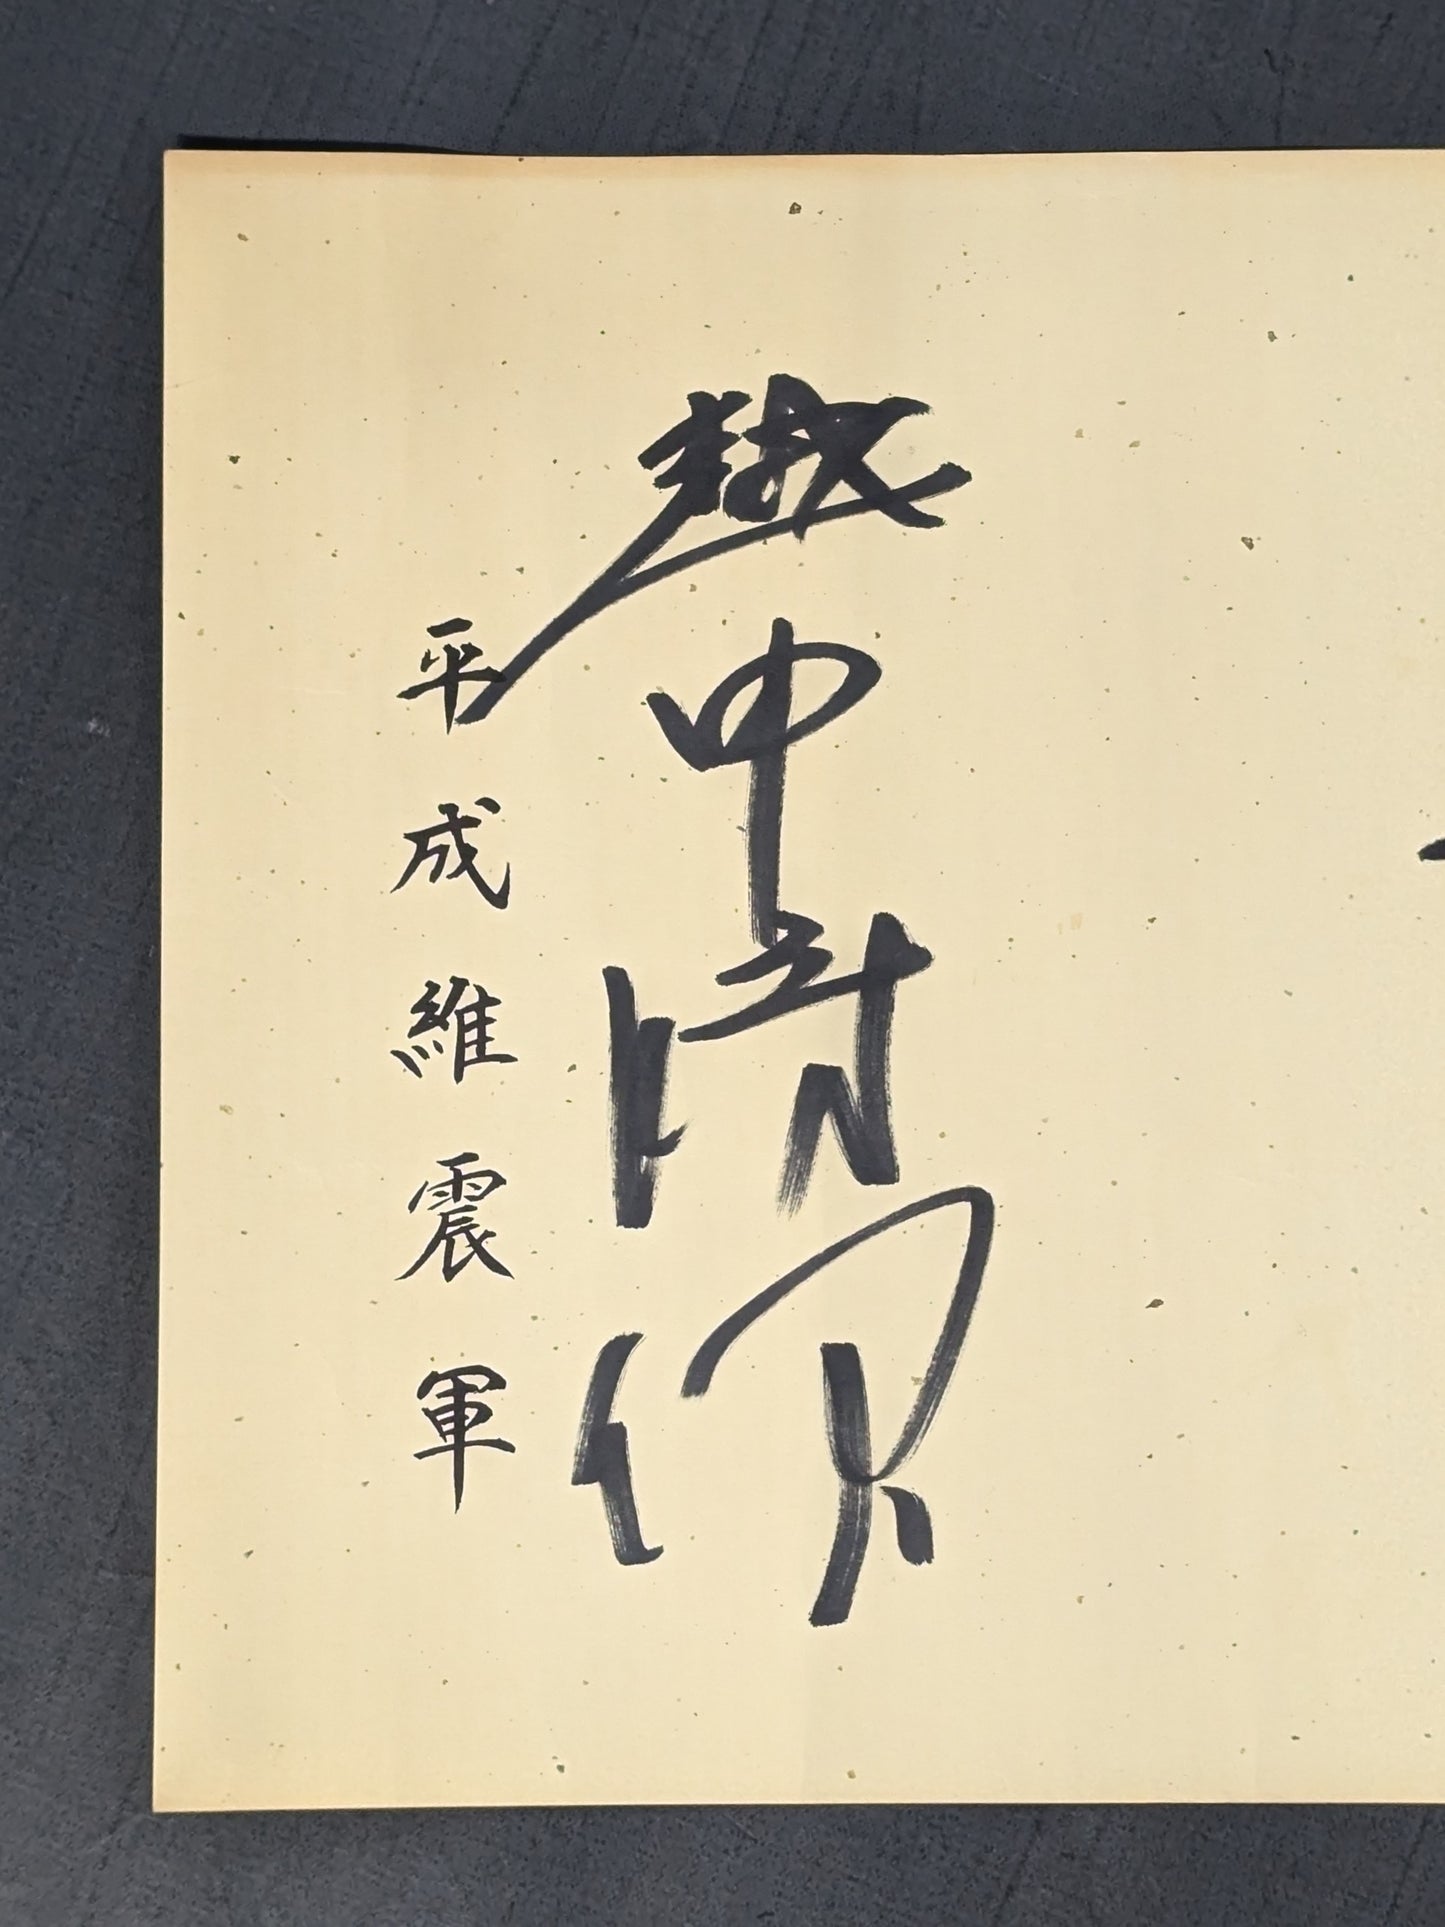 越中詩郎
平成維震軍